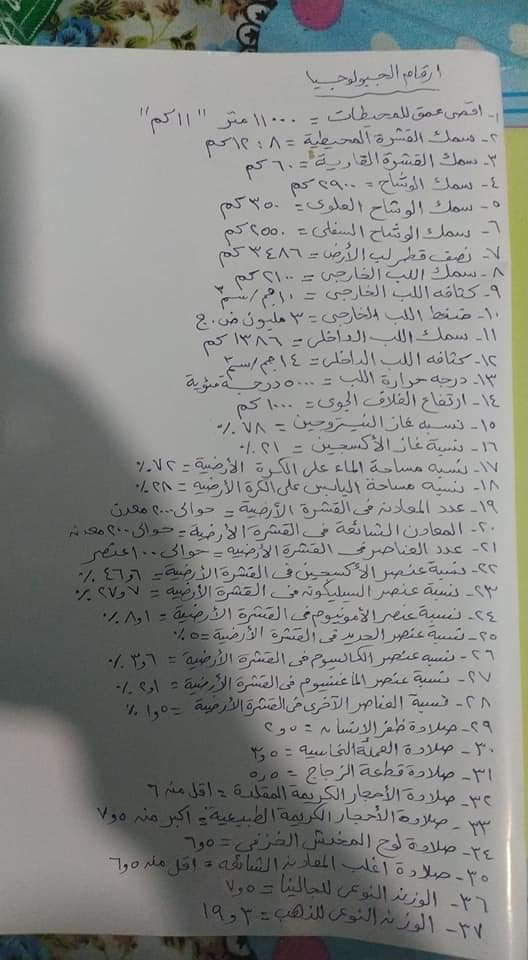 ارقام الجيولوجيا
١- اقصى عمق للمحيطات = ١١٠٠٠ متر "١١ كم"
٢- سمك القشرة المحيطية = ٨ : ١٢ كم
٣- سمك القشرة القارية = ٦٠ كم
٤- سمك الوشاح = ٢٩٠٠ كم
٥- سمك الوشاح العلوى = ٣٥٠ كم
٦- سمك الوشاح السفلى = ٢٥٥٠ كم
٧- نصف قطر لب الأرض = ٣٤٨٦ كم
٨- سمك اللب الخارجى = ٢١٠٠ كم
٩- كثافه اللب الخارجى = ١٠ جم/سم٣
١٠- ضغط اللب الخارجى = ٣ مليون ض.ج
١١- سمك اللب الداخلى = ١٣٨٦ كم
١٢- كثافه اللب الداخلى = ١٤ جم/سم٣
١٣- درجه حرارة اللب = ٥٠٠٠ درجة مئوية
١٤- ارتفاع الغلاف الجوى = ١٠٠٠ كم
١٥- نسبه غاز النيتروجين = ٧٨٪
١٦- نسبة غاز الأكسجين = ٢١٪
١٧- نسبه مساحة الماء على الكرة الأرضية = ٧٢٪
١٨- نسبه مساحة اليابس على الكرة الأرضيه = ٢٨٪
١٩- عدد المعادن فى القشرة الأرضية = حوالى ٢٠٠٠ معدن
٢٠- المعادن الشائعة فى القشرة الأرضية = حوالى ٢٠٠ معدن
٢١- عدد العناصر فى القشرة الأرضيه = حوالى ١٠٠ عنصر
٢٢- نسبة عنصر الأكسجين فى القشرة الأرضية = ٦و٤٦٪
٢٣- نسبة عنصر السليكون فى القشرة الأرضية = ٧و٢٧٪
٢٤- نسبة عنصر الألومنيوم فى القشرة الأرضية = ١و٨٪
٢٥- نسبة عنصر الحديد فى القشرة الأرضية = ٥٪
٢٦- نسبه عنصر الكالسيوم فى القشرة الأرضية = ٦و٣٪
٢٧- نسبة عنصر الماغنسيوم فى القشرة الأرضية = ١و٢٪
٢٨- نسبة العناصر الآخرى فى القشرة الأرضية = ٥و١٪
٢٩- صلادة ظفر الإنسان = ٥و٢
٣٠- صلادة العملة النحاسيه = ٥و٣
٣١- صلادة قطعة الزجاج = ٥و٥
٣٢- صلادة الأحجار الكريمة المقلدة = اقل من ٦
٣٣- صلادة الأحجار الكريمة الطبيعية = اكبر من ٥و٧
٣٤- صلادة لوح المخدش الخزفى = ٥و٦
٣٥- صلادة اغلب المعادن الشائعه = اقل من ٥و٦
٣٦- الوزن النوعى للجالينا = ٥و٧
٣٧- الوزن النوعى للذهب = ٣و١٩